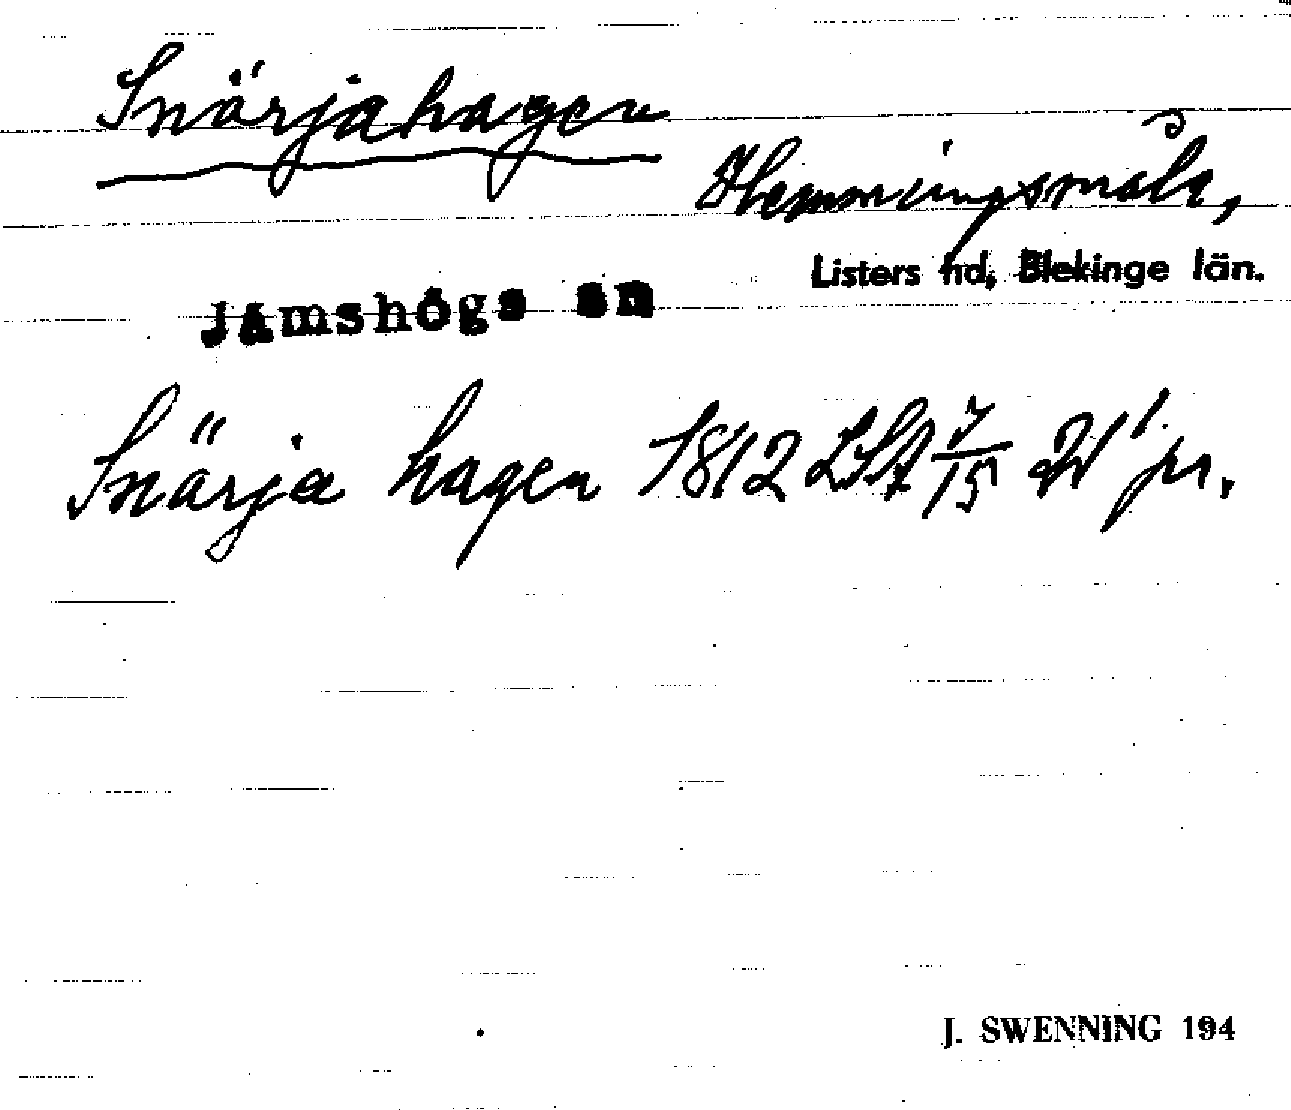 Snärjahagen
Hemmingsmåla,
Listers hd, Blekinge län.
Jämshögs sn
Snärja hagen 1812 LSA 7/15 pr.
J. SWENNING 194